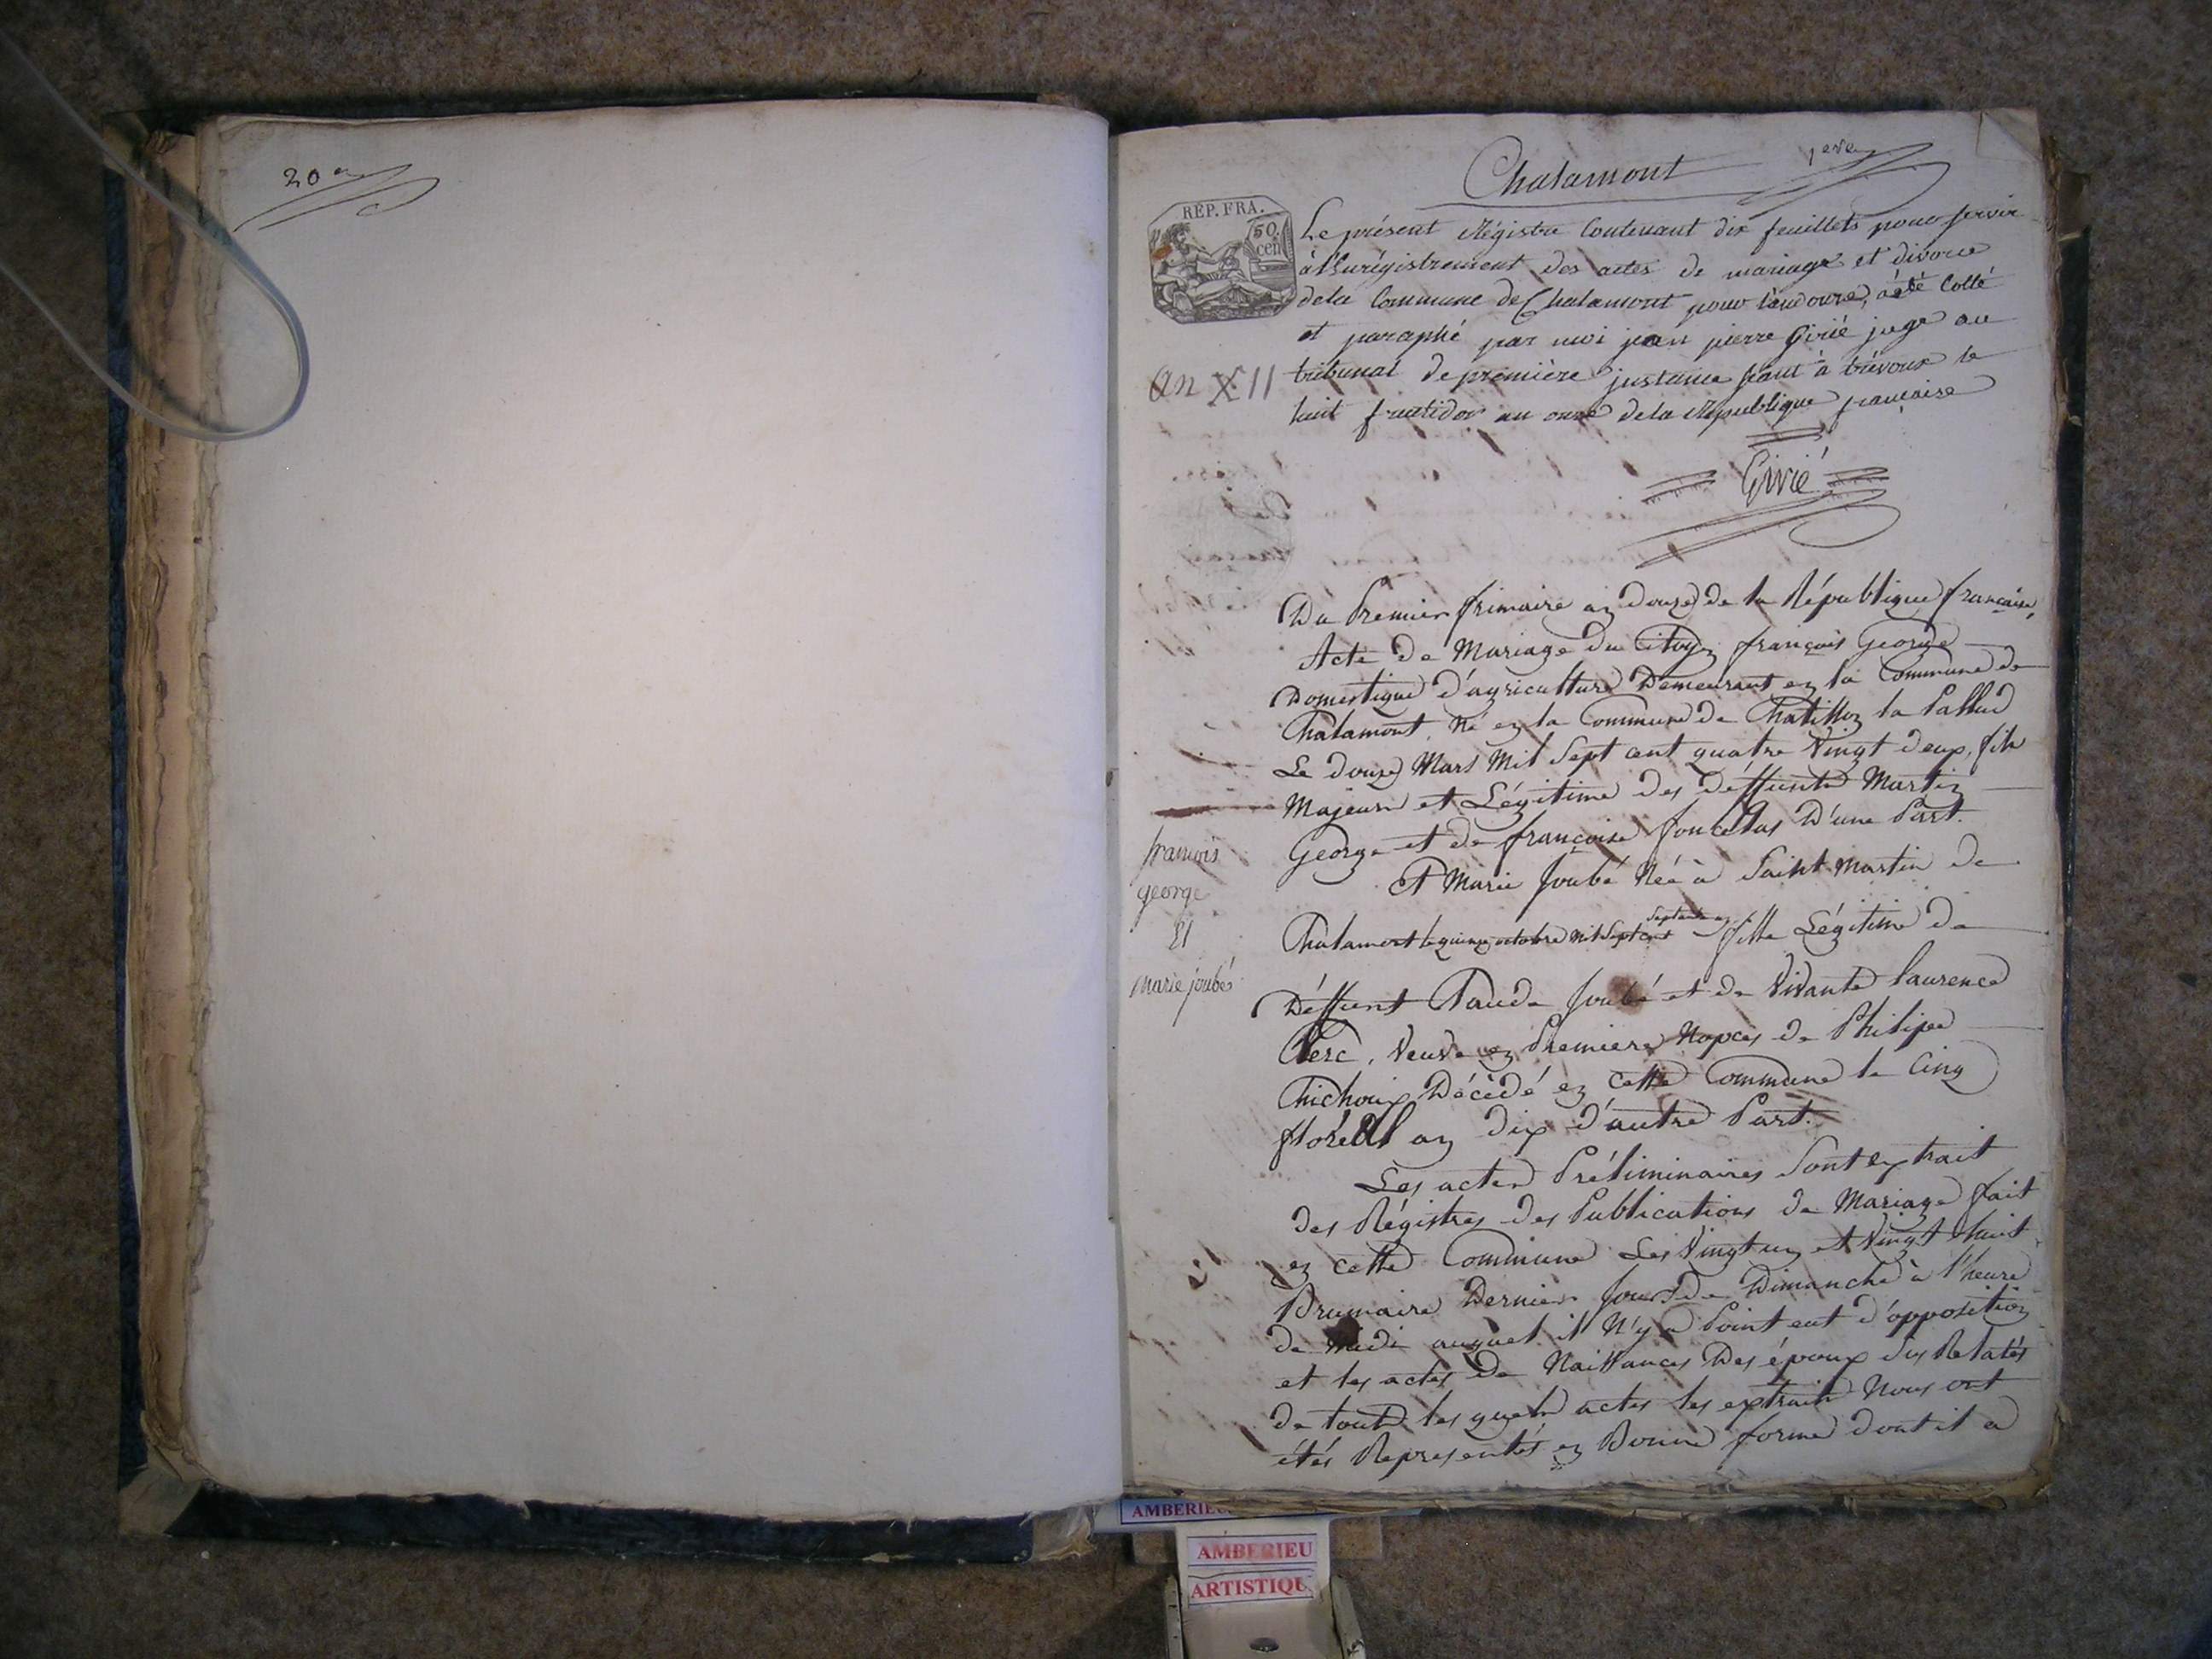 20
Chalamont
1ere
REP. FRA.
50 cen
Le présent Régistre Contenant dix feuillets pour servir
à l'Enrégistrement des actes de mariage et divorce
dela Commune de Chalamont pour l'an douze, a été Cotté
et paraphé par moi jean pierre Girié juge au
tribunal de première justance séant à trévoux le
huit fructidor an onze dela République française
an XII
Girié
Du Premier frimaire an douze de la République française,
Acte de Mariage du Citoyen françois George
Domestique d'agriculture Demeurant en la Commune de
Chalamont, Né en la Commune de Chatillon la Pallud
Le douze Mars Mil Sept cent quatre Vingt deux, fils
Majeur et Légitime des deffunts Martin
George et de françoise D'une Part.
françois
george
Et
marie joubé
Et Marie Joubé Née à Saint Martin de
Chalamont le quinze octobre Mil Sept Cent septante fille Légitime de
Déffunt Claude Joubé et de Vivante Laurence
Clerc, Veuve en Premiere Nopces de Philipe
Chichoux Décédé en cette Commune le Cinq
floréal an dix d'autre Part.
Les actes Préliminaires sont extrait
des Régistres des Publications de Mariage fait
en cette Commune Les Vingt un et Vingt huit
Brumaire Dernier Jours de Dimanche à l'heure
de Midi auquel il N'y a Point eut d'opposition
et les actes de Naissances Des époux sus Relatés
de touts les quels actes les extraits Nous ont
étés Representés en Bonne forme dont il a
AMBERIEU
AMBERIEU
ARTISTIQU